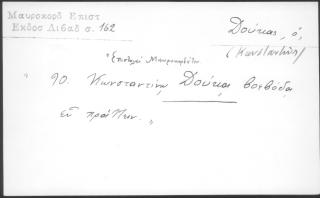 Μαυροκορδ Επιστ
Εκδος Λιβαδ σ. 162
Δούκας, ὁ,
(Κωνσταντῖνος)
"Ἐπιστολαὶ Μαυροκορδάτου
90. Κωνσταντίνῳ Δούκᾳ βοεβόδᾳ
εὖ πράττειν. "